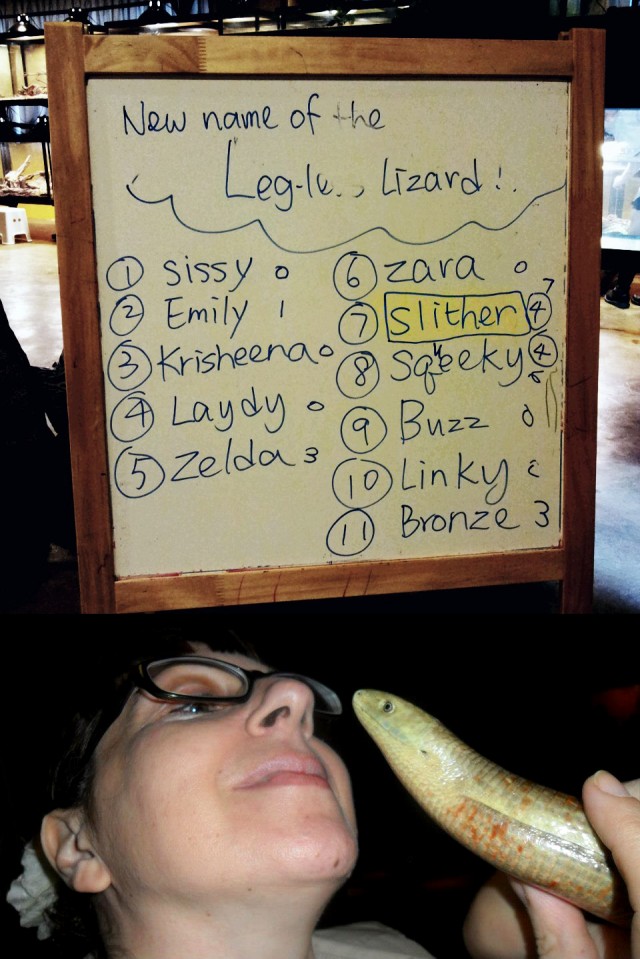 New name of the
Lizard!
① sissy 0
② Emily 1
③ Krisheena 0
④ Laydy 0
⑤ Zelda 3
⑥ zara 0
⑦ Slither ④ 7
⑧ Squeeky ④
⑨ Buzz 0
⑩ Linky
⑪ Bronze 3